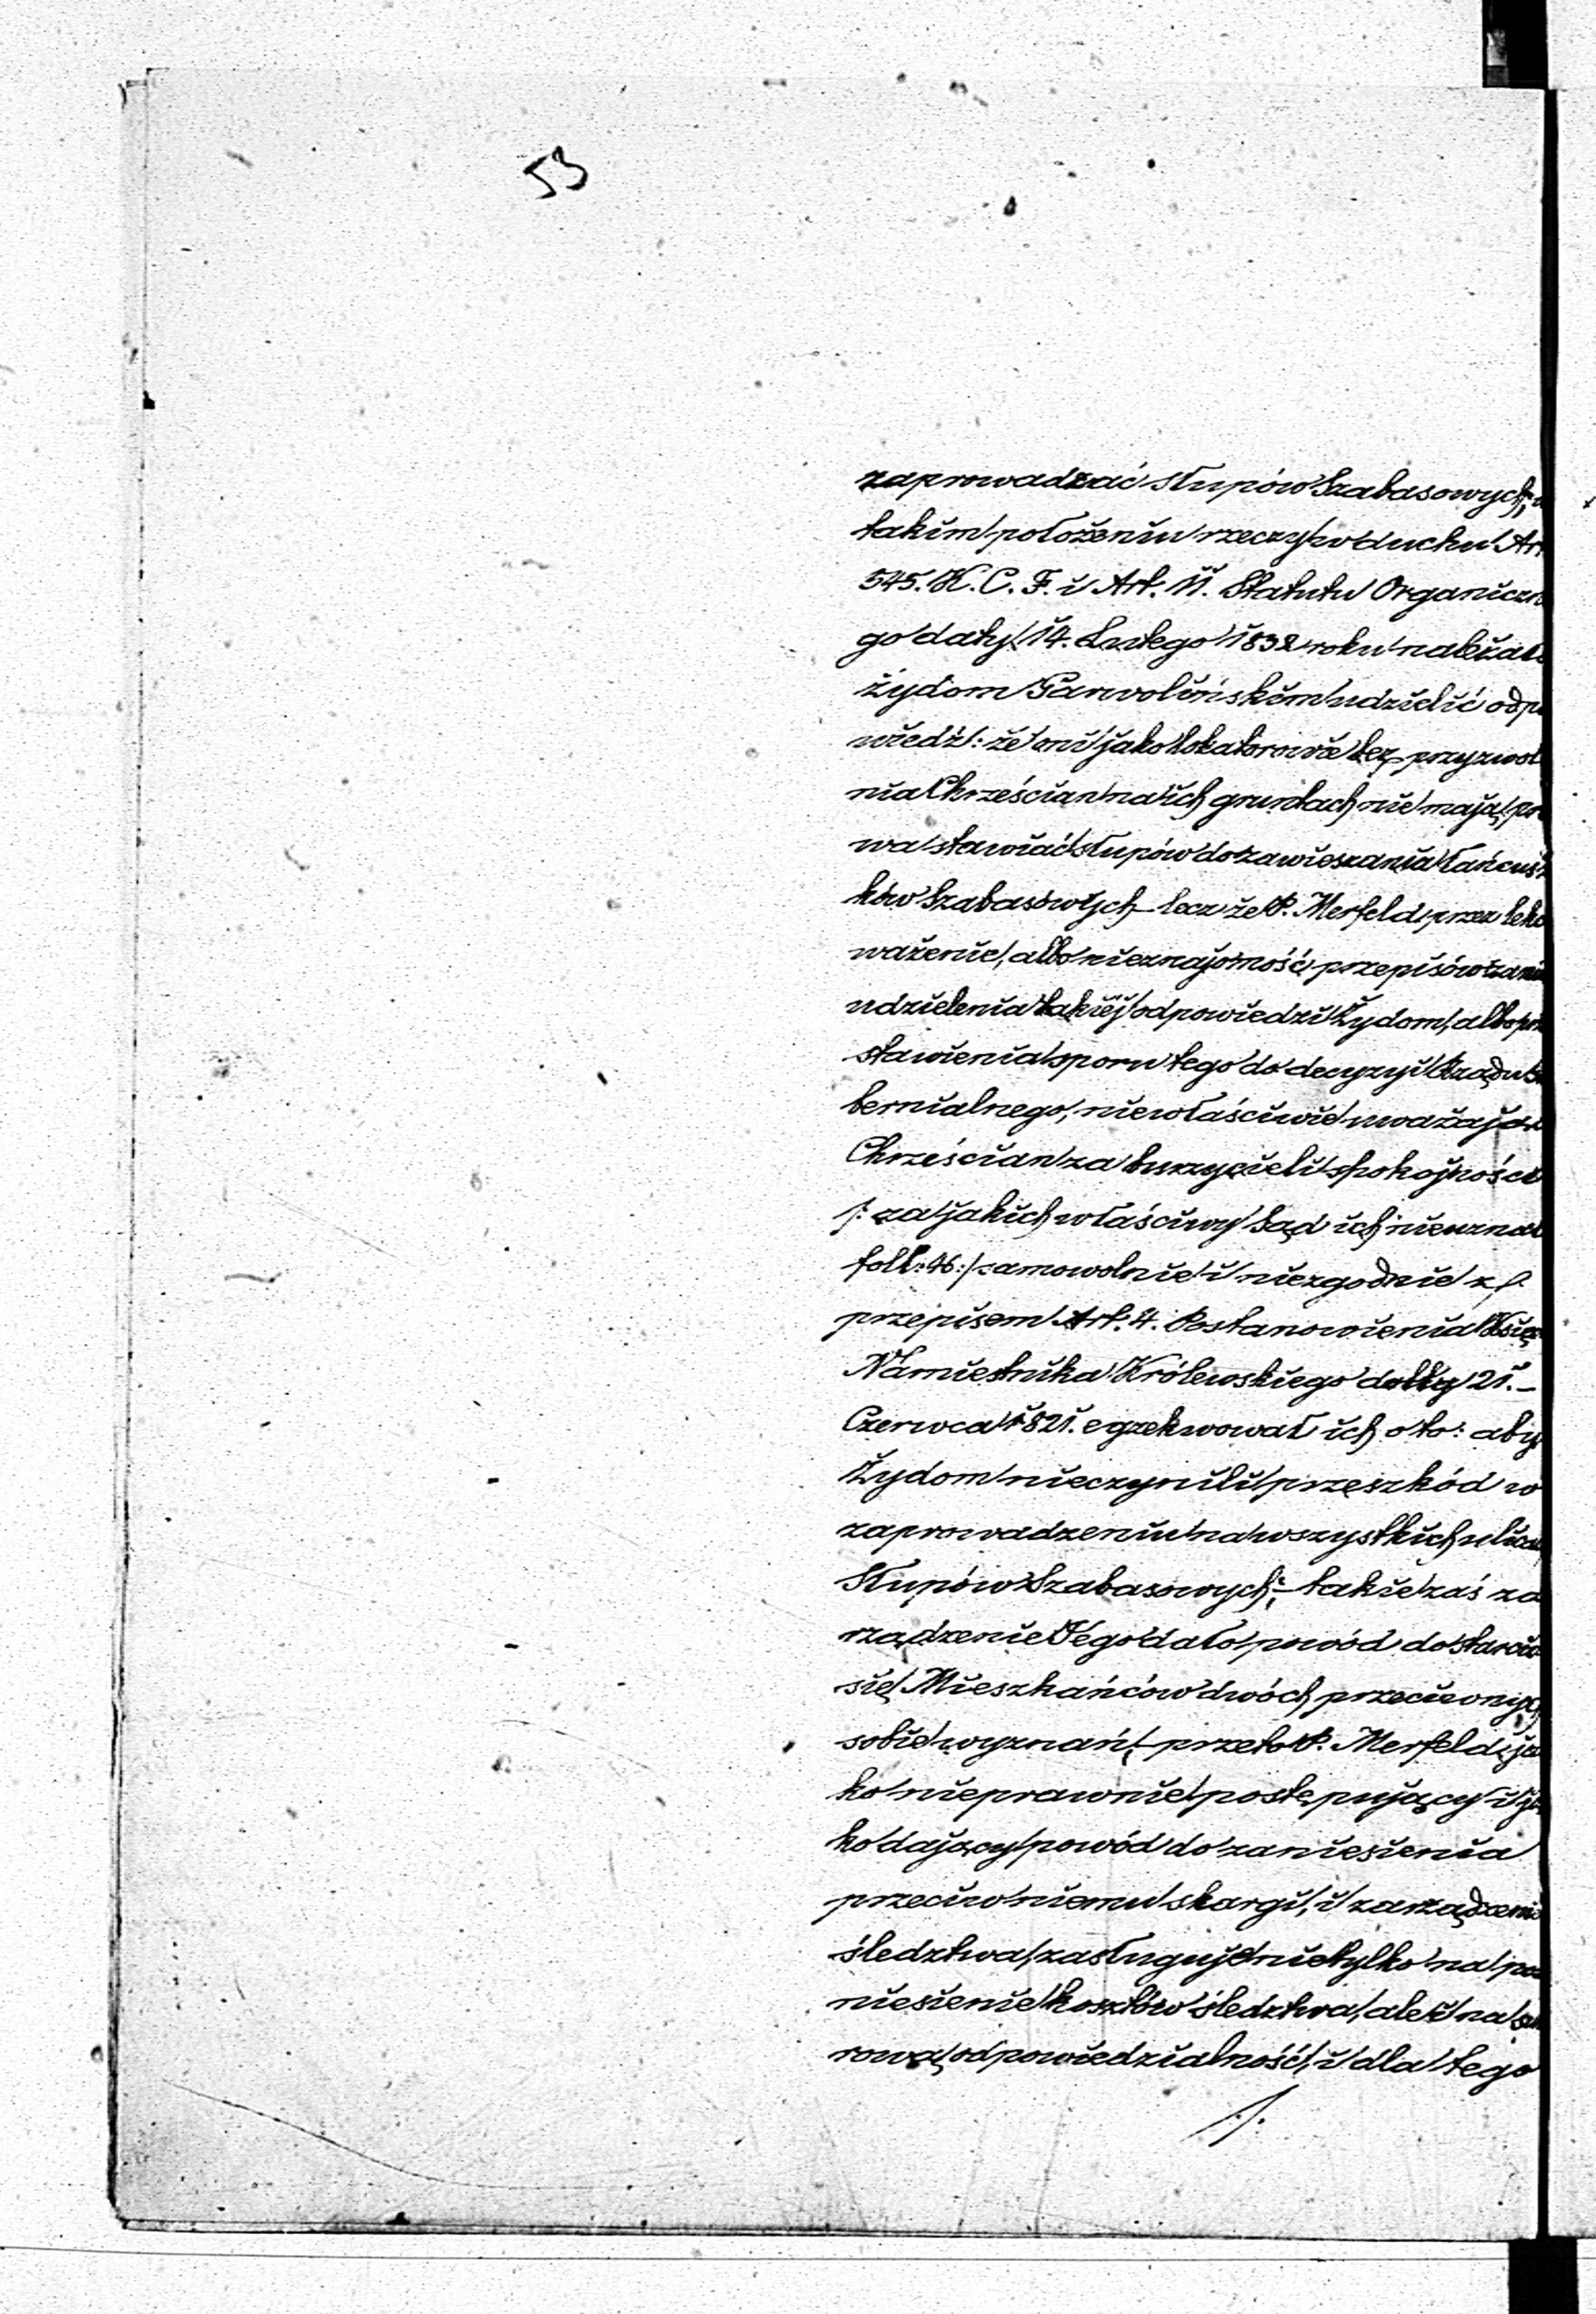 53
zaprowadzać słupów Szabasowych; w
takim położeniu rzeczy w duchu Art
545. K. C. F. i Art. 11. Statutu Organiczn
go daty 14. Lutego 1832 roku należało
żydom Garwolińskim udzielić odpo
wiedź: że oni jako lokatorowie bez przyzwol
nia Chrześcian na ich gruntach nie mają pr
wa stawiać słupów do zawieszania łańcusz
ków Szabasowych – lecz że P. Merfeld przez lekc
ważenie, albo nieznajomość przepisów zami
udzielenia takiéj odpowiedzi Żydom, albo prz
stawienia sporu tego do decyzyi Rządu Gu
bernialnego, niewłaściwie uważając
Chrześcian za burzycieli spokojności
/: za jakich właściwy Sąd ich nieuznał
foll: 46:/ samowolnie i niezgodnie z /.
przepisem Art: 4. Postanowienia Księ
Namiestnika Królewskiego datty 21. –
Czerwca 1821. egzekwował ich o to: aby
Żydom nieczynili przeszkód w
zaprowadzeniu na wszystkich ulicach
Słupów Szabasowych; – takie zaś za
rządzenie Jego dało powód do starcia
się Mieszkańców dwóch przeciwnych
sobie wyznań; – przeto P. Merfeld ja
ko nieprawnie postępujący i ja
ko dający powód do zaniesienia
przeciw niemu skargi, i zarządzenia
śledztwa, zasługuje nietylko na po
niesienie kosztów śledztwa, ale i na su
rową odpowiedzialność, i dla tego
./.